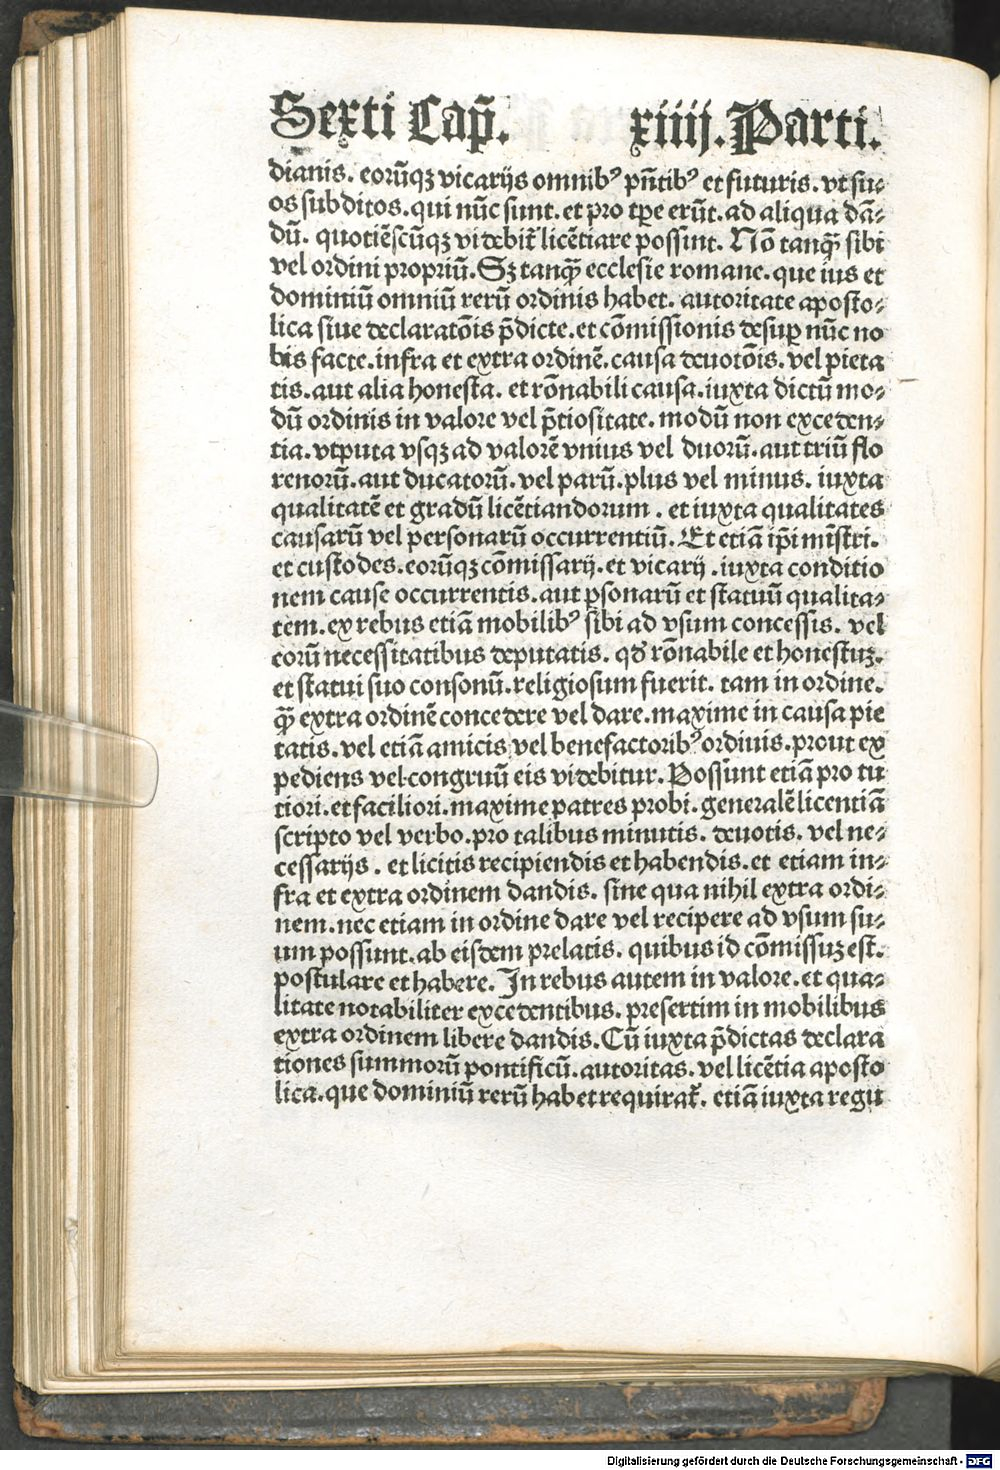 Sexti Cap̃. xiiij. Parti.
dianis. eorũqꝫ vicarijs omnibꝰ pñtibꝰ et futuris. vt su⸗
os subditos. qui nũc sunt. et pro tp̃e erũt. ad aliqua dã⸗
dũ. quotiẽscũqꝫ videbit̃ licẽtiare possint. Nõ tanq̃ sibi
vel ordini propriũ. Sꝫ tanq̃ ecclesie romane. que ius et
dominiũ omniũ rerũ ordinis habet. autoritate aposto⸗
lica siue declaratõis p̃dicte. et cõmissionis desuꝑ nũc no
bis facte. infra et extra ordinẽ. causa deuotõis. vel pieta
tis. aut alia honesta. et rõnabili causa. iuxta dictũ mo⸗
dũ ordinis in valore vel p̃tiositate. modũ non exceden⸗
tia. vtputa vsqꝫ ad valorẽ vnius vel duorũ. aut triũ flo
renorũ. aut ducatorũ. vel parũ. plus vel minus. iuxta
qualitatẽ et gradũ licẽtiandorum. et iuxta qualitates
causarũ vel personarũ occurrentiũ. Et etiã ip̃i min̄stri.
et custodes. eorũqꝫ cõmissarij. et vicarij. iuxta conditio
nem cause occurrentis. aut ꝑsonarũ et statuũ qualita⸗
tem. ex rebus etiã mobilibꝰ sibi ad vsum concessis. vel
eorũ necessitatibus deputatis. qď rõnabile et honestuꝫ.
et statui suo consonũ. religiosum fuerit. tam in ordine.
q̃ extra ordinẽ concedere vel dare. maxime in causa pie
tatis. vel etiã amicis vel benefactoribꝰ ordinis. prout ex
pediens vel congruũ eis videbitur. Possunt etiã pro tu
tiori. et faciliori. maxime patres probi. generalẽ licentiã
scripto vel verbo. pro talibus minutis. deuotis. vel ne⸗
cessarijs. et licitis recipiendis et habendis. et etiam in⸗
fra et extra ordinem dandis. sine qua nihil extra ordi⸗
nem. nec etiam in ordine dare vel recipere ad vsum su⸗
um possunt. ab eisdem prelatis. quibus id cõmissuꝫ est.
postulare et habere. In rebus autem in valore. et qua⸗
litate notabiliter excedentibus. presertim in mobilibus
extra ordinem libere dandis. Cũ iuxta p̃dictas declara
tiones summorũ pontificũ. autoritas. vel licẽtia aposto
lica. que dominiũ rerũ habet requirat̃. etiã iuxta regu
Digitalisierung gefördert durch die Deutsche Forschungsgemeinschaft - DFG